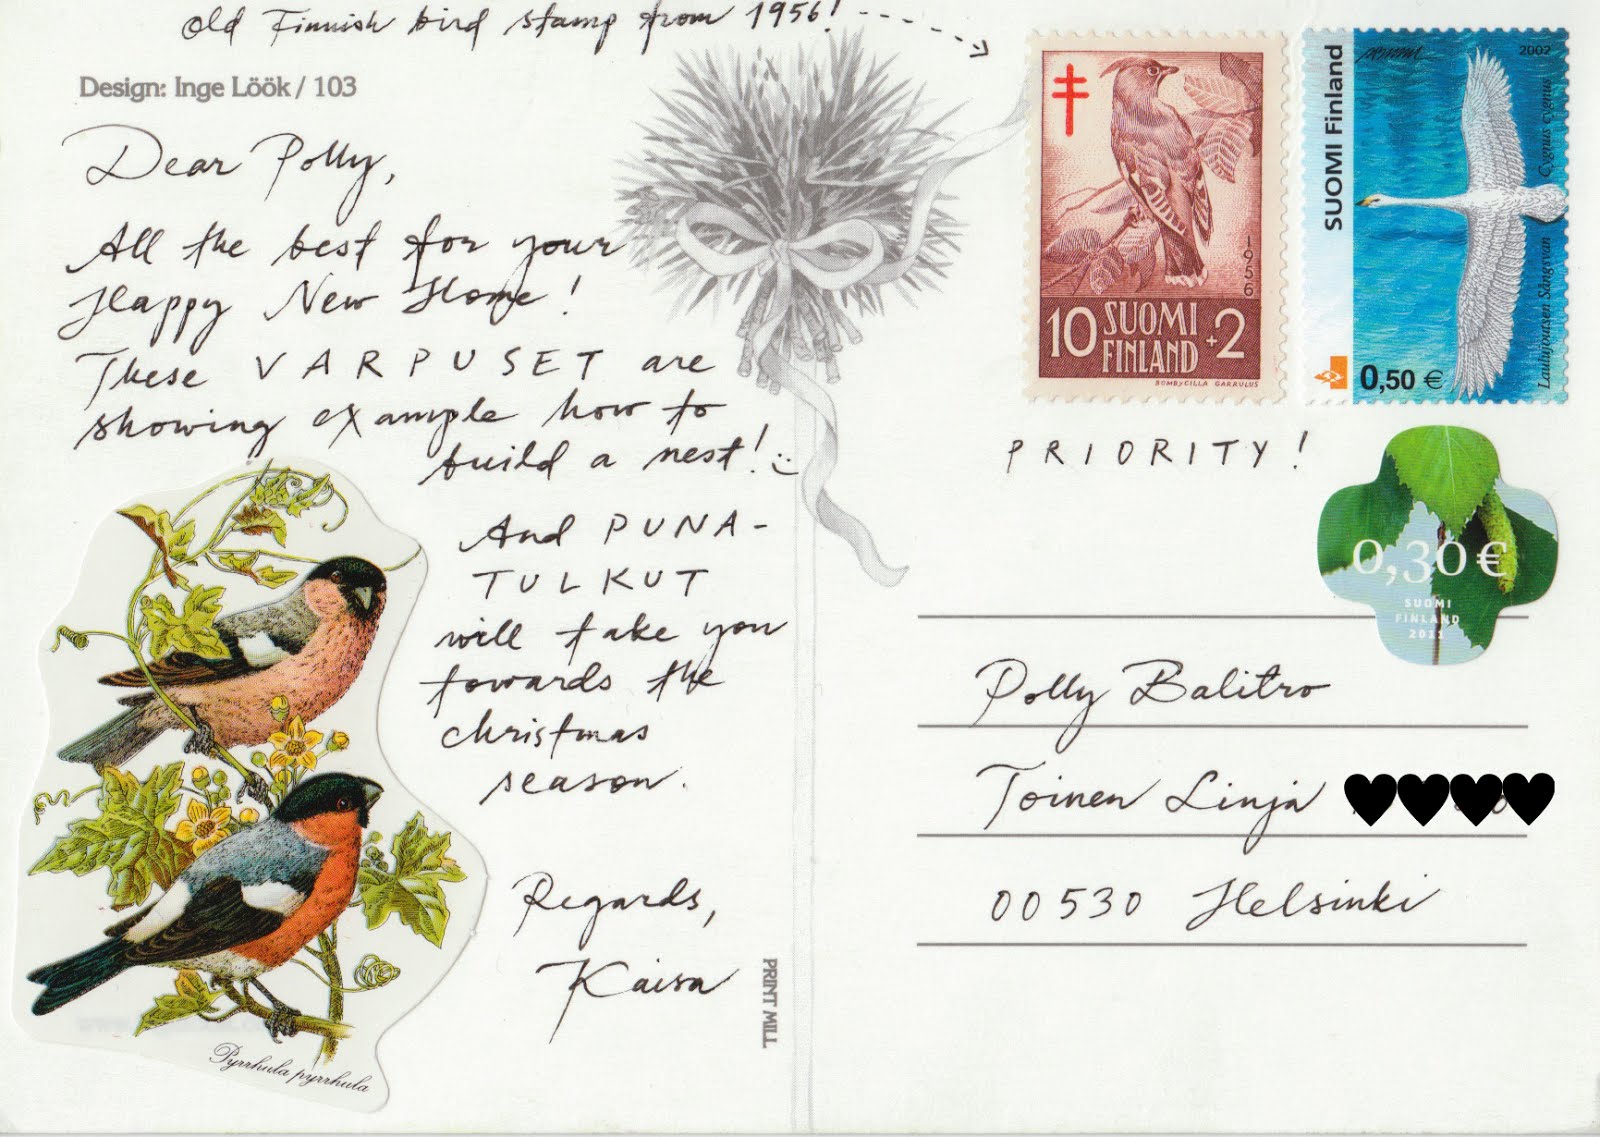 Old Finnish bird stamp from 1956!
Design: Inge Löök / 103
Dear Polly,
All the best for your
Happy New Home!
These VARPUSET are
showing example how to
build a nest! :)
And PUNA-
TULKUT
will take you
towards the
christmas
season.
Regards,
Kaisa
Pyrrhula pyrrhula
PRINT MILL
1956
10 SUOMI FINLAND +2
BOMBYCILLA GARRULUS
SUOMI Finland
2002
Laulujoutsen Sångsvan Cygnus cygnus
0,50 €
PRIORITY!
0,30 €
SUOMI
FINLAND
2011
Polly Balitro
Toinen Linja
00530 Helsinki